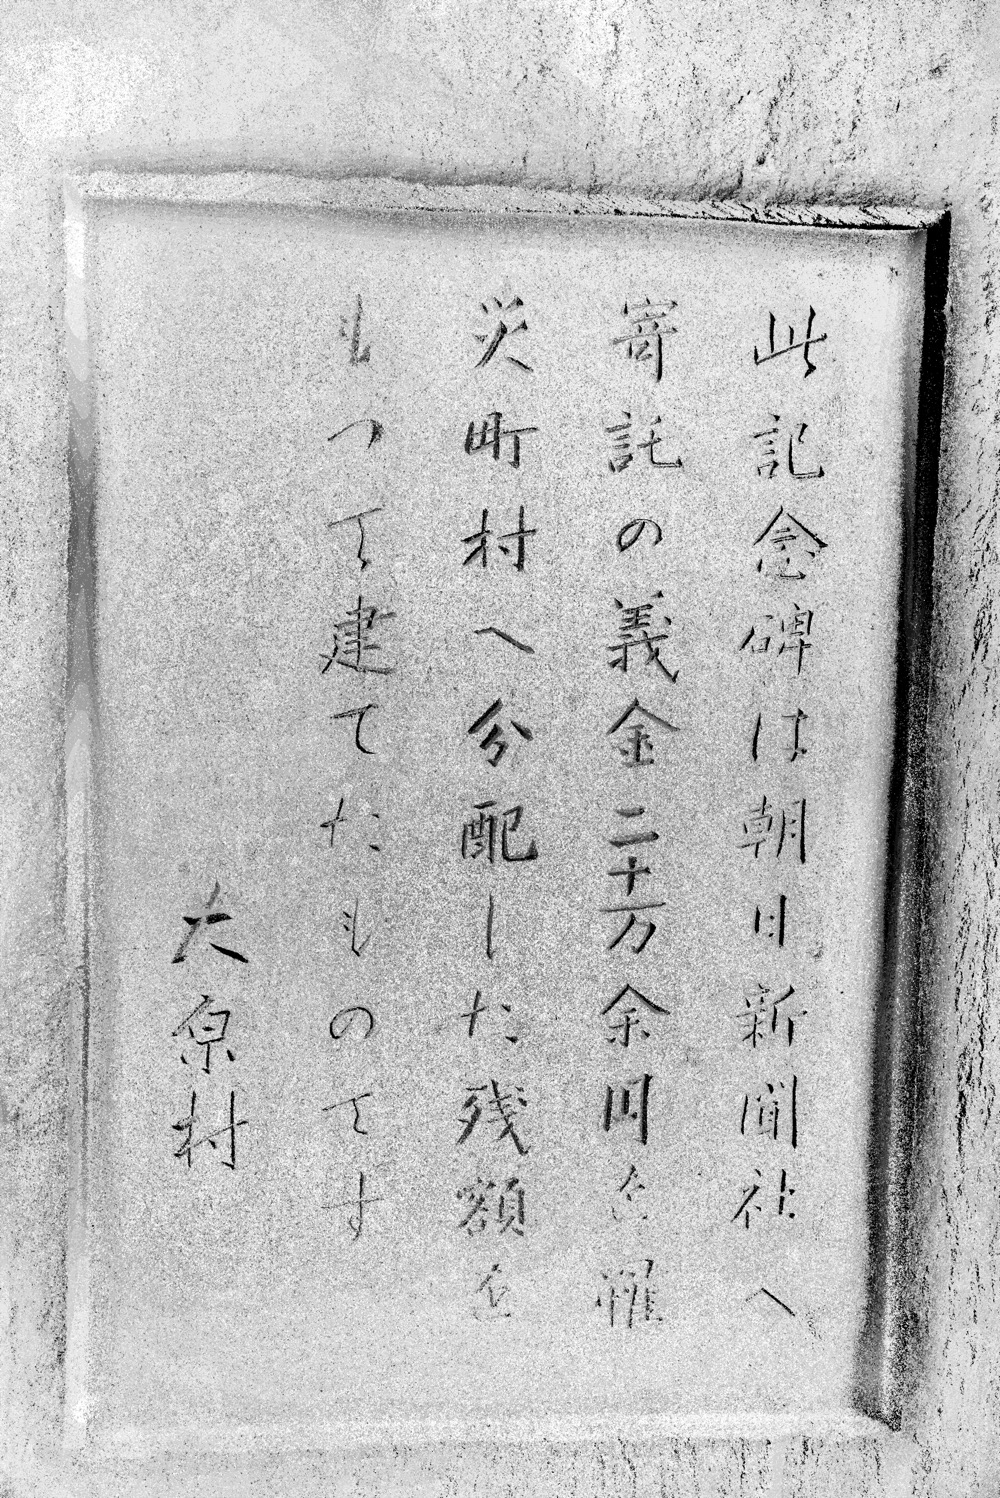 此記念碑は朝日新聞社へ
寄託の義金二十万余円を罹
災町村へ分配した残額を
もつて建てたものです
大原村